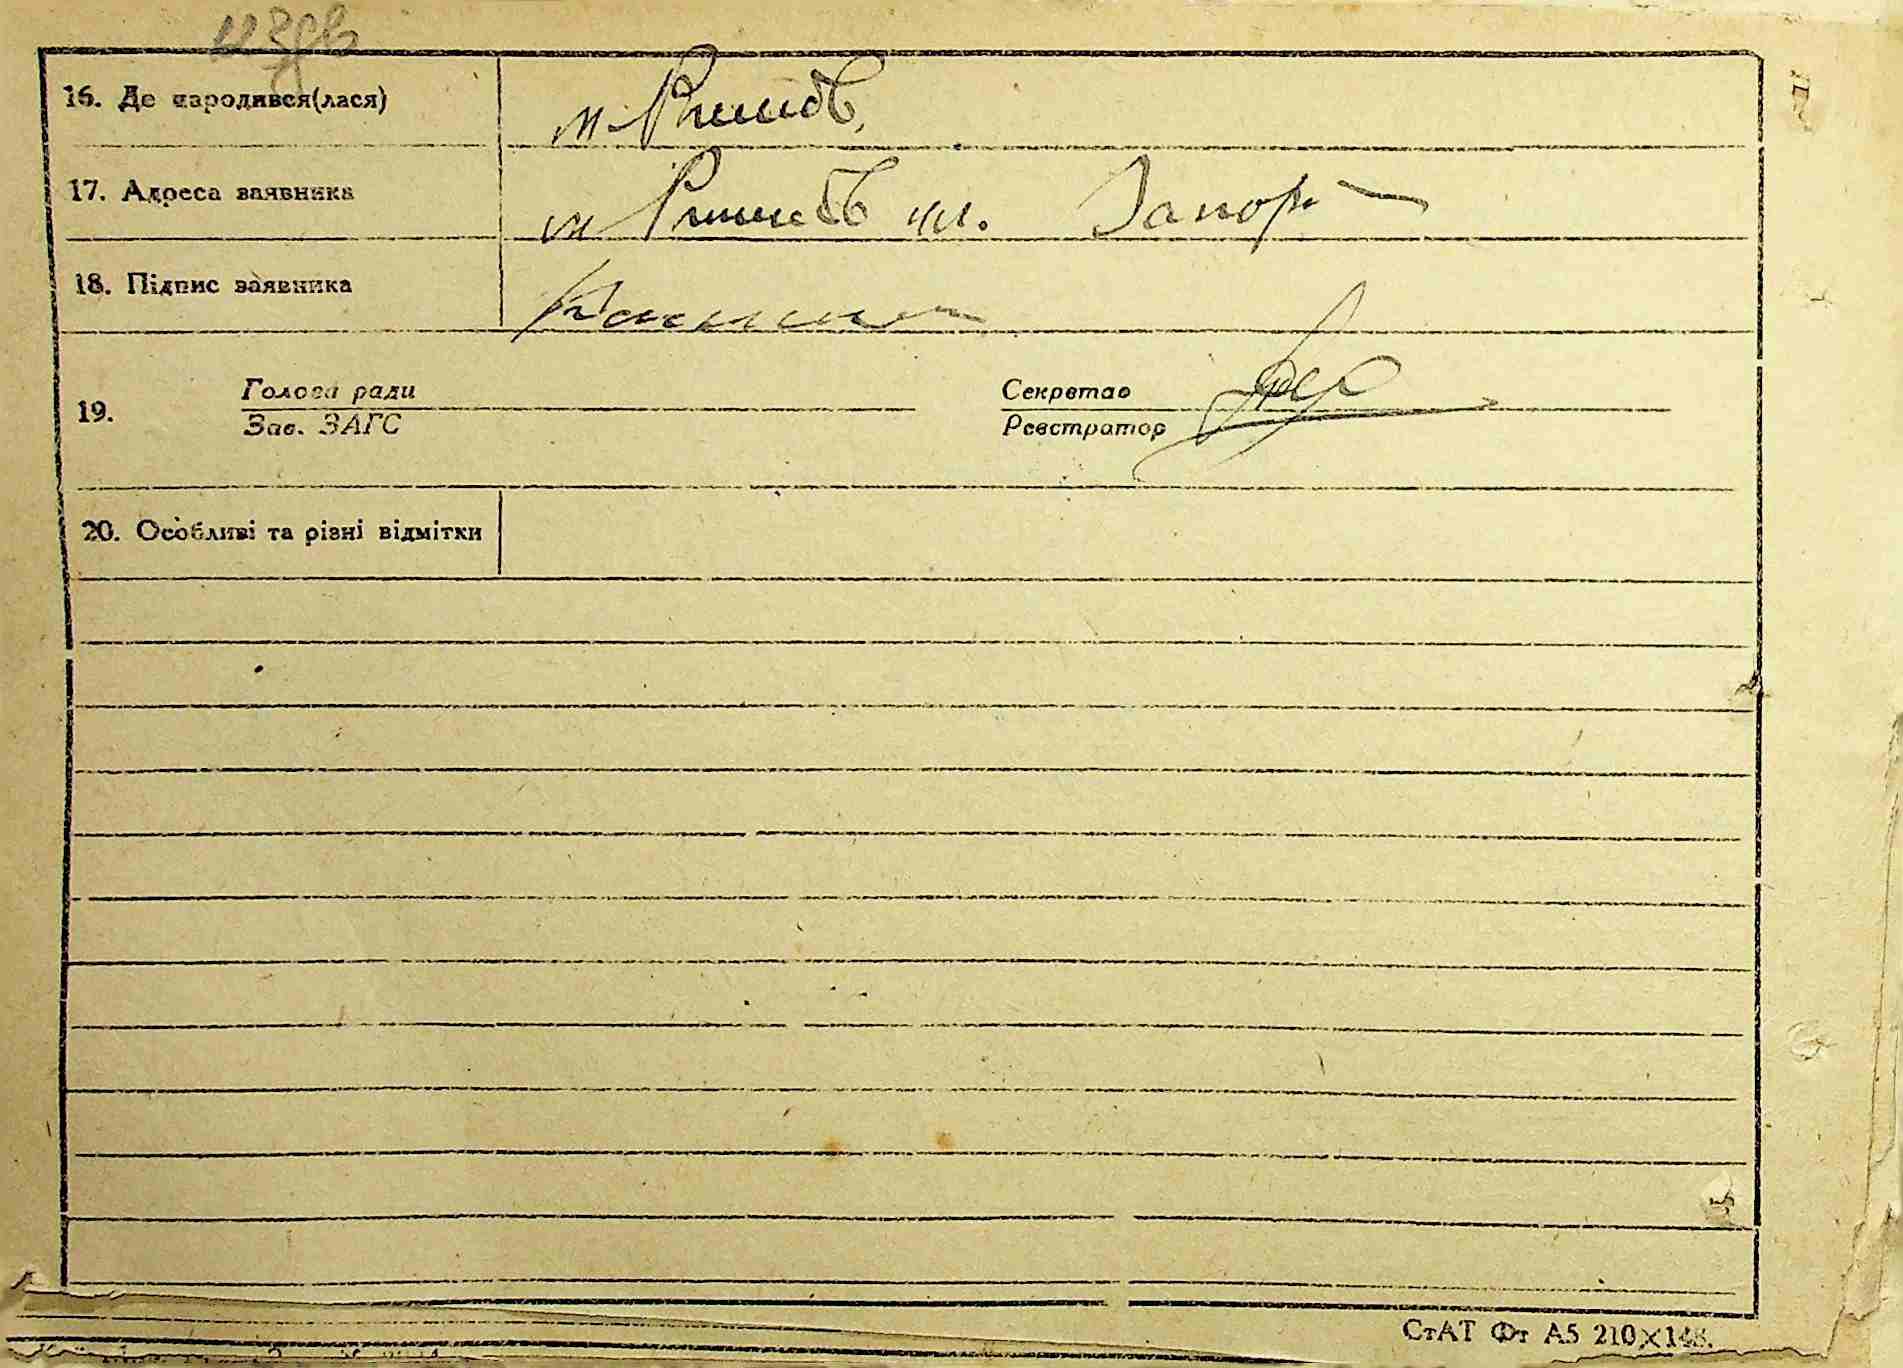 16. Де народився(лася) м.
17. Адреса заявника м вул. Запор
18. Підпис заявника
19. Голова ради Секретар
Зав. ЗАГС Реєстратор
20. Особливі та різні відмітки
СтАТ Фт А5 210×148.